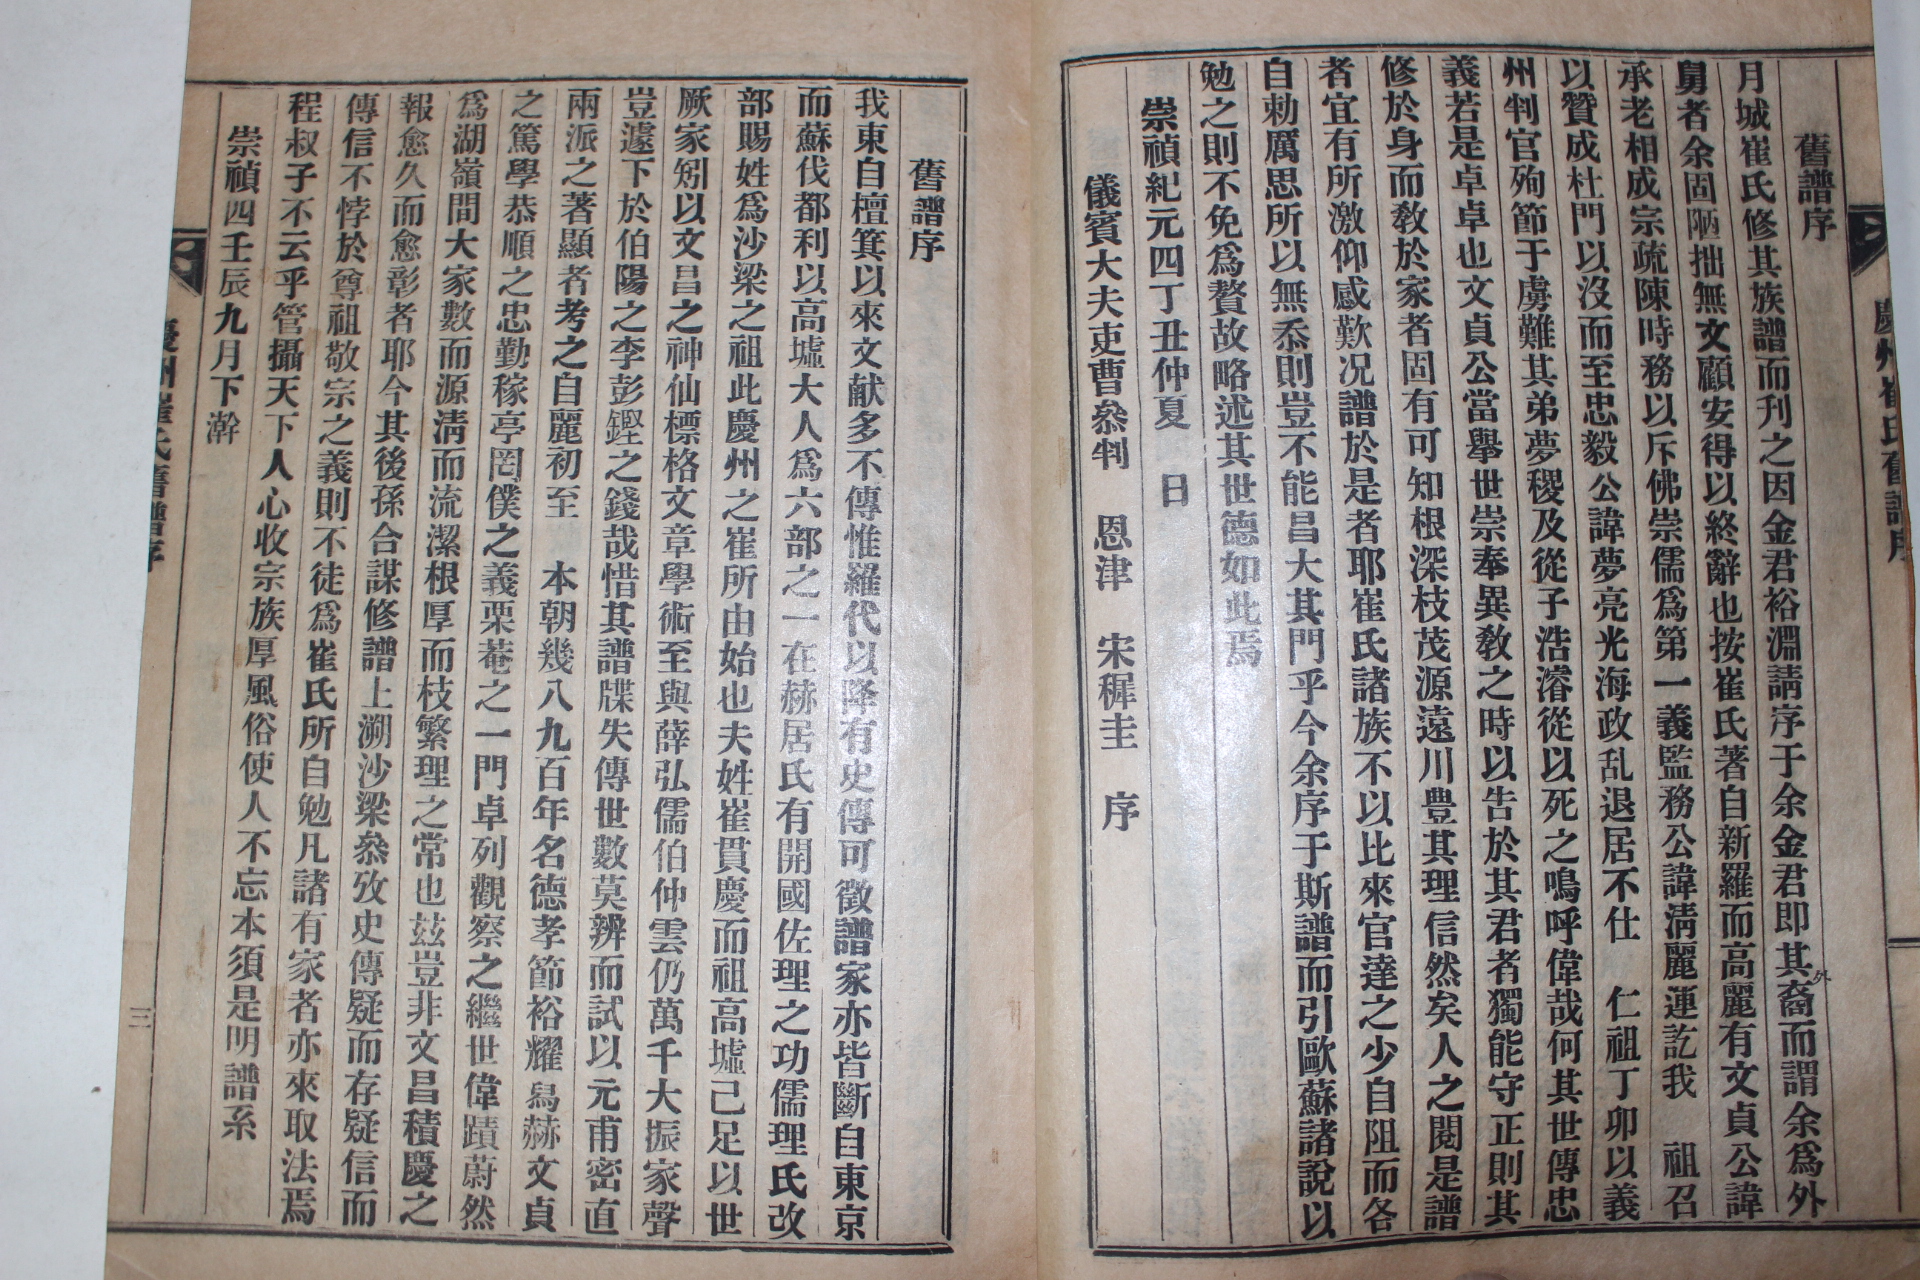 舊譜序
月城崔氏修其族譜而刊之因金君裕淵請序于余金君即其外裔而謂余爲外
舅者余固陋拙無文顧安得以終辭也按崔氏著自新羅而高麗有文貞公諱
承老相成宗疏陳時務以斥佛崇儒爲第一義監務公諱淸麗運訖我 祖召
以贊成杜門以沒而至忠毅公諱夢亮光海政乱退居不仕 仁祖丁卯以義
州判官殉節于虜難其弟夢稷及從子浩濬從以死之嗚呼偉哉何其世傳忠
義若是卓卓也文貞公當擧世崇奉異敎之時以告於其君者獨能守正則其
修於身而敎於家者固有可知根深枝茂源遠川豊其理信然矣人之閱是譜
者宜有所激仰感歎况譜於是者耶崔氏諸族不以比來官達之少自阻而各
自勅厲思所以無忝則豈不能昌大其門乎今余序于斯譜而引歐蘇諸說以
勉之則不免爲贅故略述其世德如此焉
崇禎紀元四丁丑仲夏 日
儀賓大夫吏曹叅判 恩津 宋穉圭 序
慶州崔氏舊譜序
舊譜序
我東自檀箕以來文献多不傳惟羅代以降有史傳可徵譜家亦皆斷自東京
而蘇伐都利以高墟大人爲六部之一在赫居氏有開國佐理之功儒理氏改
部賜姓爲沙梁之祖此慶州之崔所由始也夫姓崔貫慶而祖高墟己足以世
厥家矧以文昌之神仙標格文章學術至與薛弘儒伯仲雲仍萬千大振家聲
豈遽下於伯陽之李彭鏗之錢哉惜其譜牒失傳世數莫辨而試以元甫密直
兩派之著顯者考之自麗初至 本朝幾八九百年名德孝節裕耀舃赫文貞
之篤學恭順之忠勤稼亭罔僕之義栗菴之一門卓列觀察之繼世偉蹟蔚然
爲湖嶺間大家數而源淸而流潔根厚而枝繁理之常也玆豈非文昌積慶之
報愈久而愈彰者耶今其後孫合謀修譜上溯沙梁叅攷史傳疑而存疑信而
傳信不悖於尊祖敬宗之義則不徒爲崔氏所自勉凡諸有家者亦來取法焉
程叔子不云乎管攝天下人心收宗族厚風俗使人不忘本須是明譜系
崇禎四壬辰九月下澣
慶州崔氏舊譜序
三